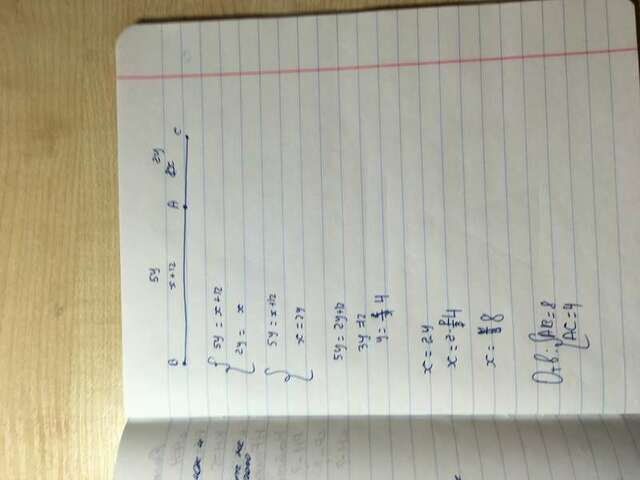 5y 2y
B x+12 A x C
5y = x+12
2y = x
5y = x+12
x = 2y
5y = 2y+12
3y = 12
y = 4
x = 2y
x = 2·4
x = 8
Отв: AB = 8
AC = 4